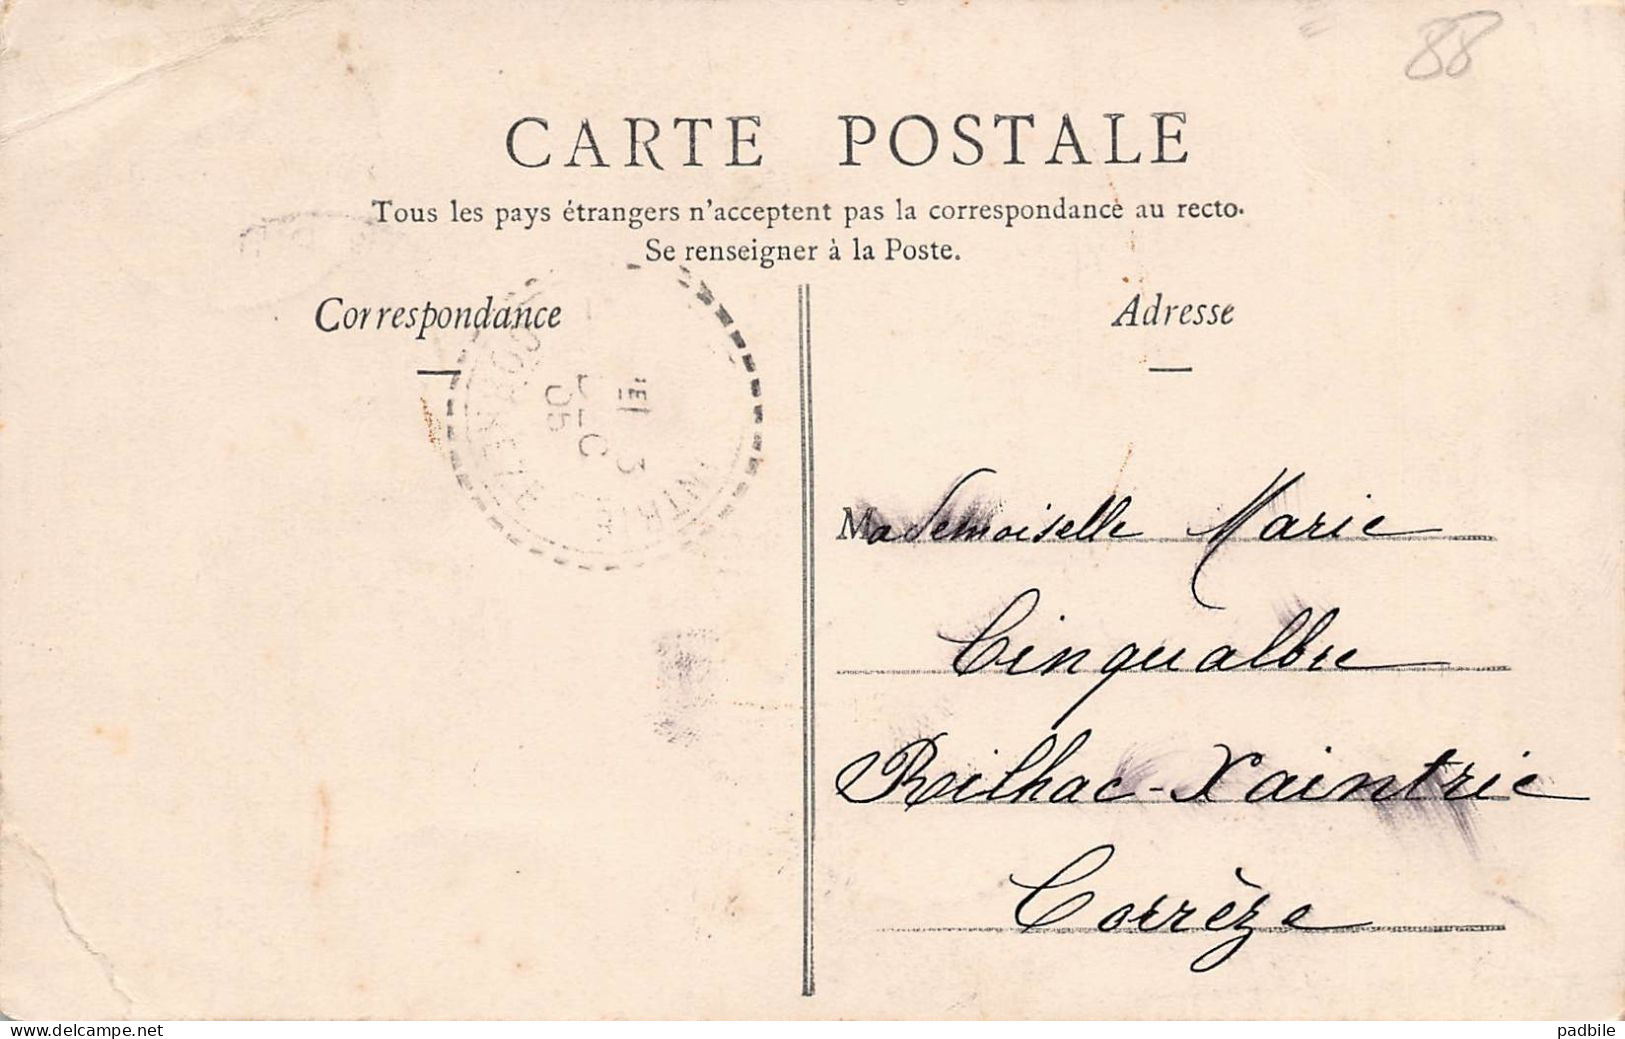 88
CARTE POSTALE
Tous les pays étrangers n'acceptent pas la correspondance au recto.
Se renseigner à la Poste.
Correspondance
Adresse
Mademoiselle Marie
Cinqualbre
Rilhac-Xaintrie
Corrèze
www.delcampe.net
padbile